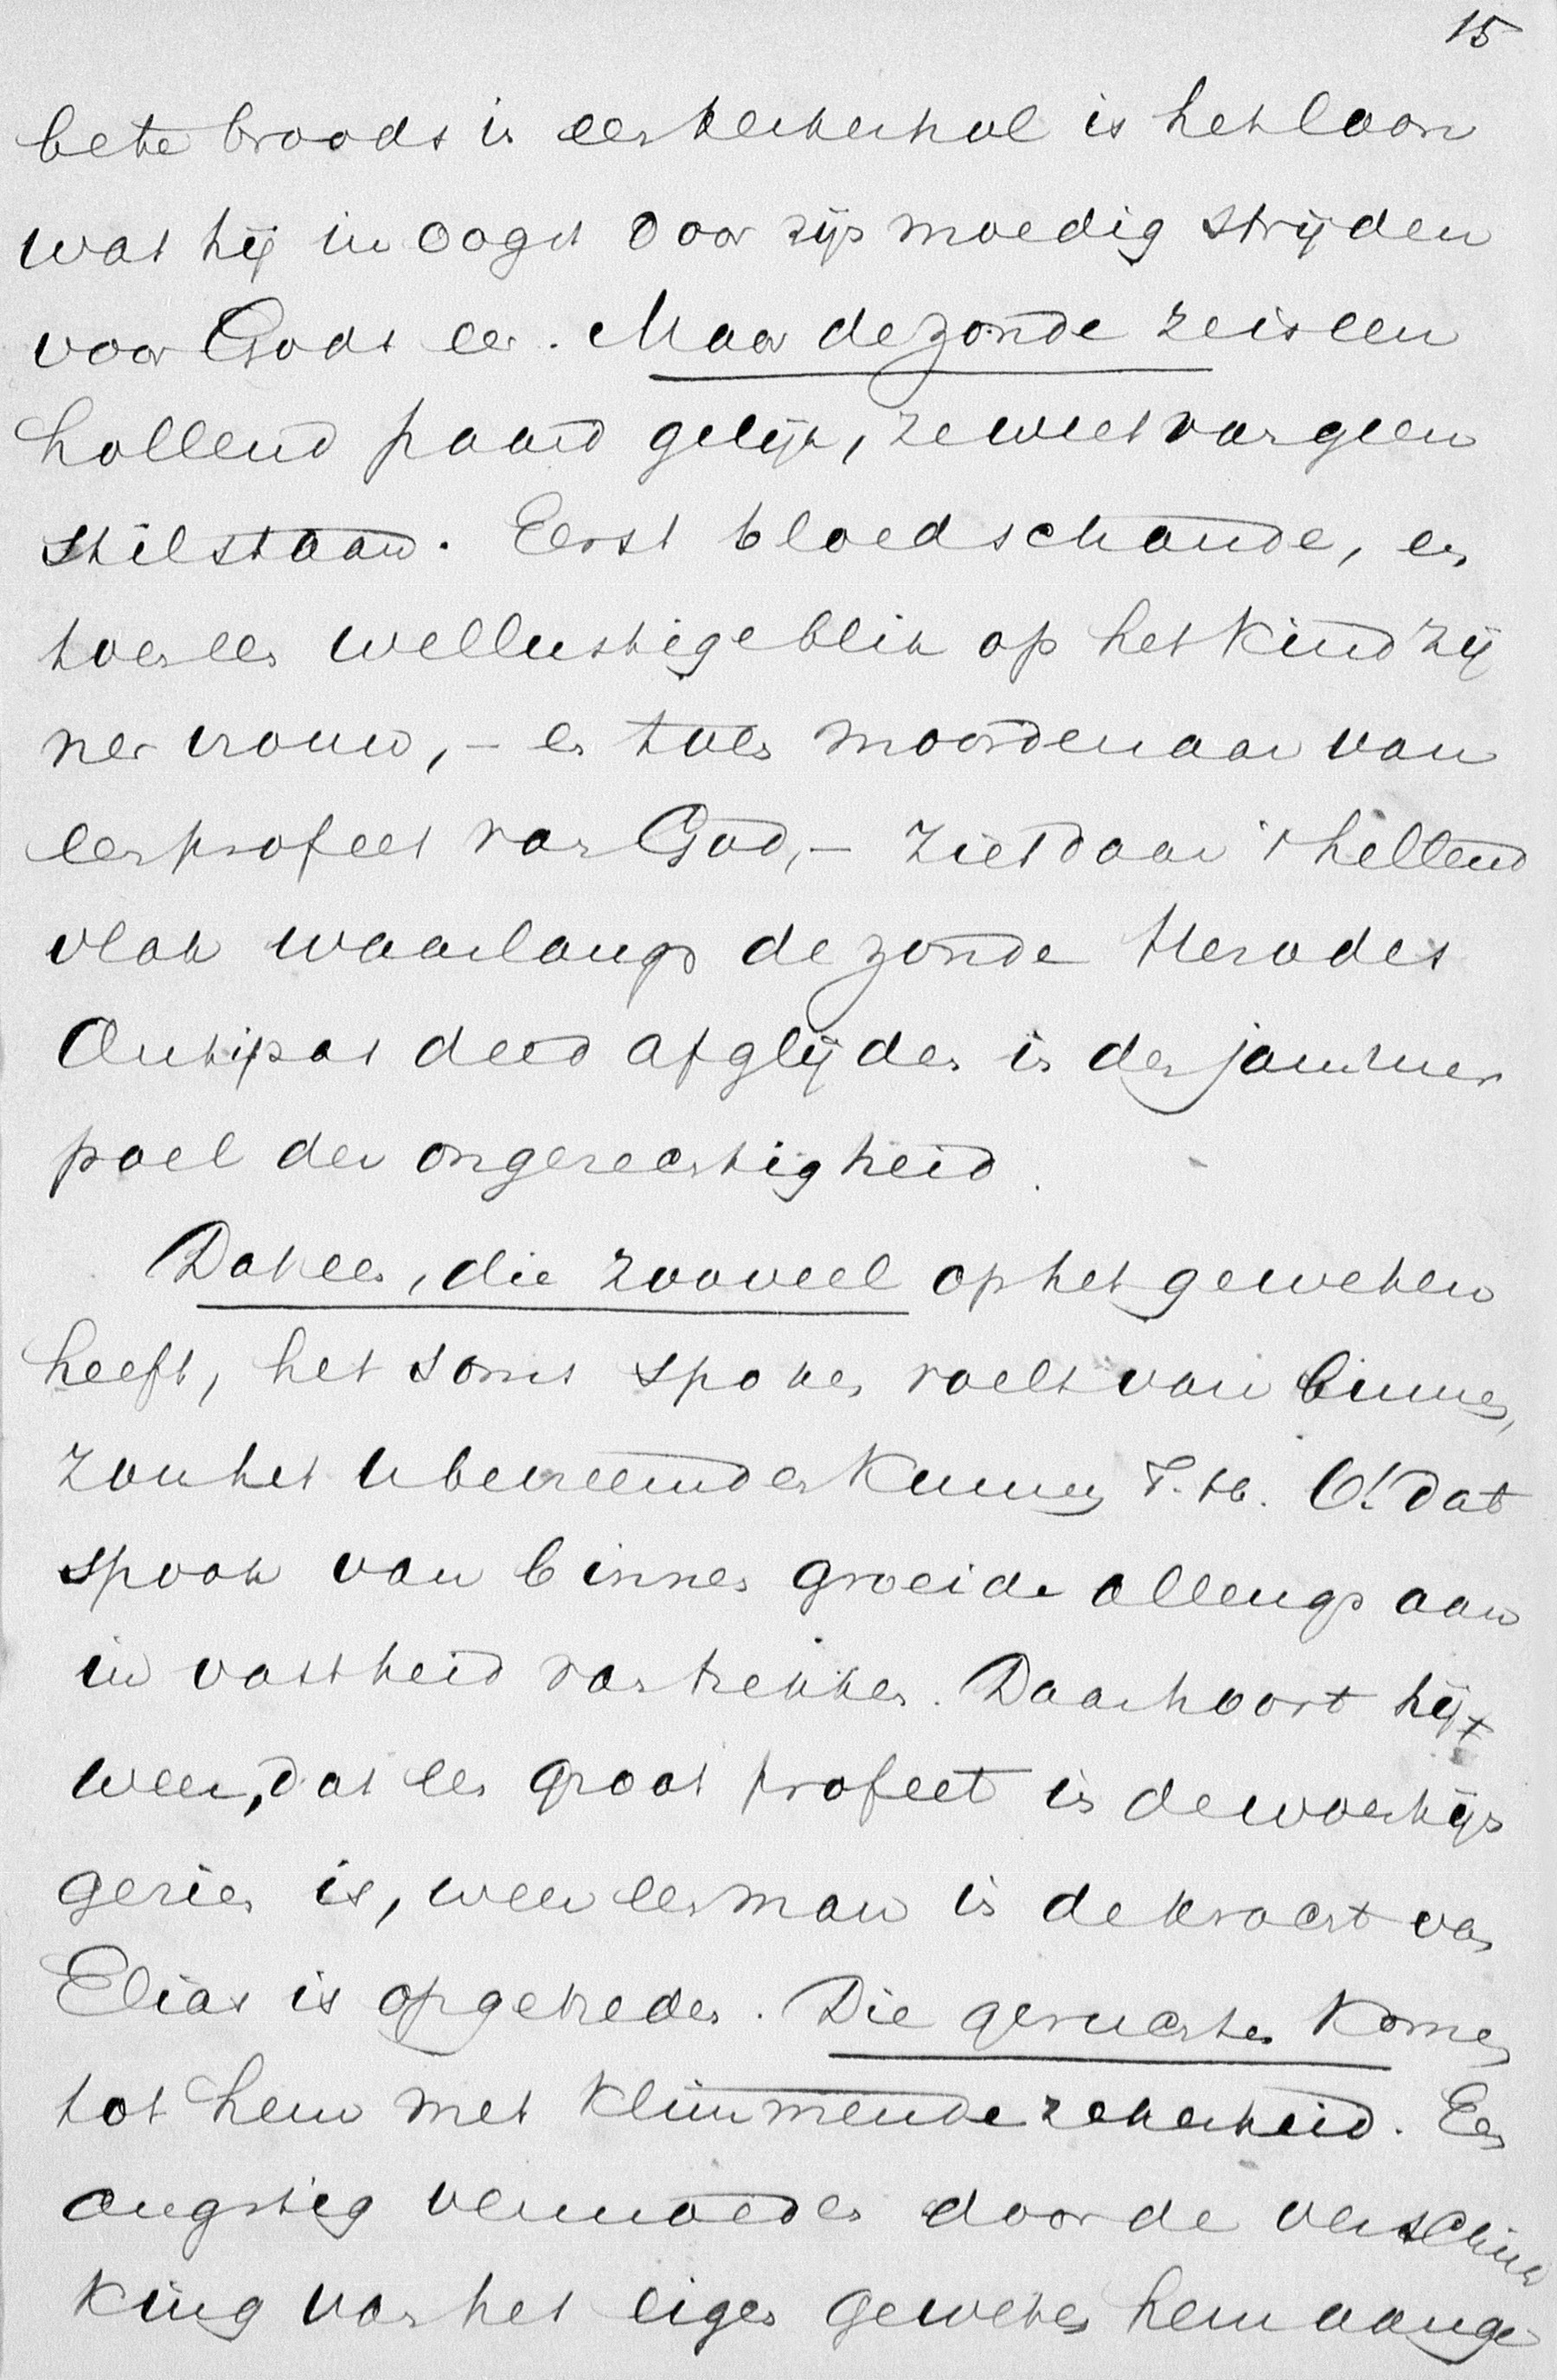 15
bete broods in een kerkerhol is het loon
wat hij in oogst voor zijn moedig strijden
voor Gods eer. Maar de zonde ze is een
hollend paard gelijk, ze weet van geen
stilstaan. Eerst bloedschande, en
toen een wellustige blik op het kind zij
ner vrouw, - en toen moordenaar van
een profeet van God, - ziet daar 't hellend
vlak waarlangs de zonde Herodes
Antipas deed afglijden in den jammer
poel der ongerechtigheid.
Dat een, die zooveel op het geweten
heeft, het soms spoken voelt van binnen,
zou het u bevreemden kunnen T. H. O! dat
spook van binnen groeide allengs aan
in vastheid van trekken. Daar hoort hij
weer, dat een groot profeet in de woestijn
gezien is, weer een man in de kracht van
Elias is opgetreden. Die geruchten komen
tot hem met klimmende zekerheid. Een
angstig vermoeden door de verschrik
king van het eigen geweten hem aange